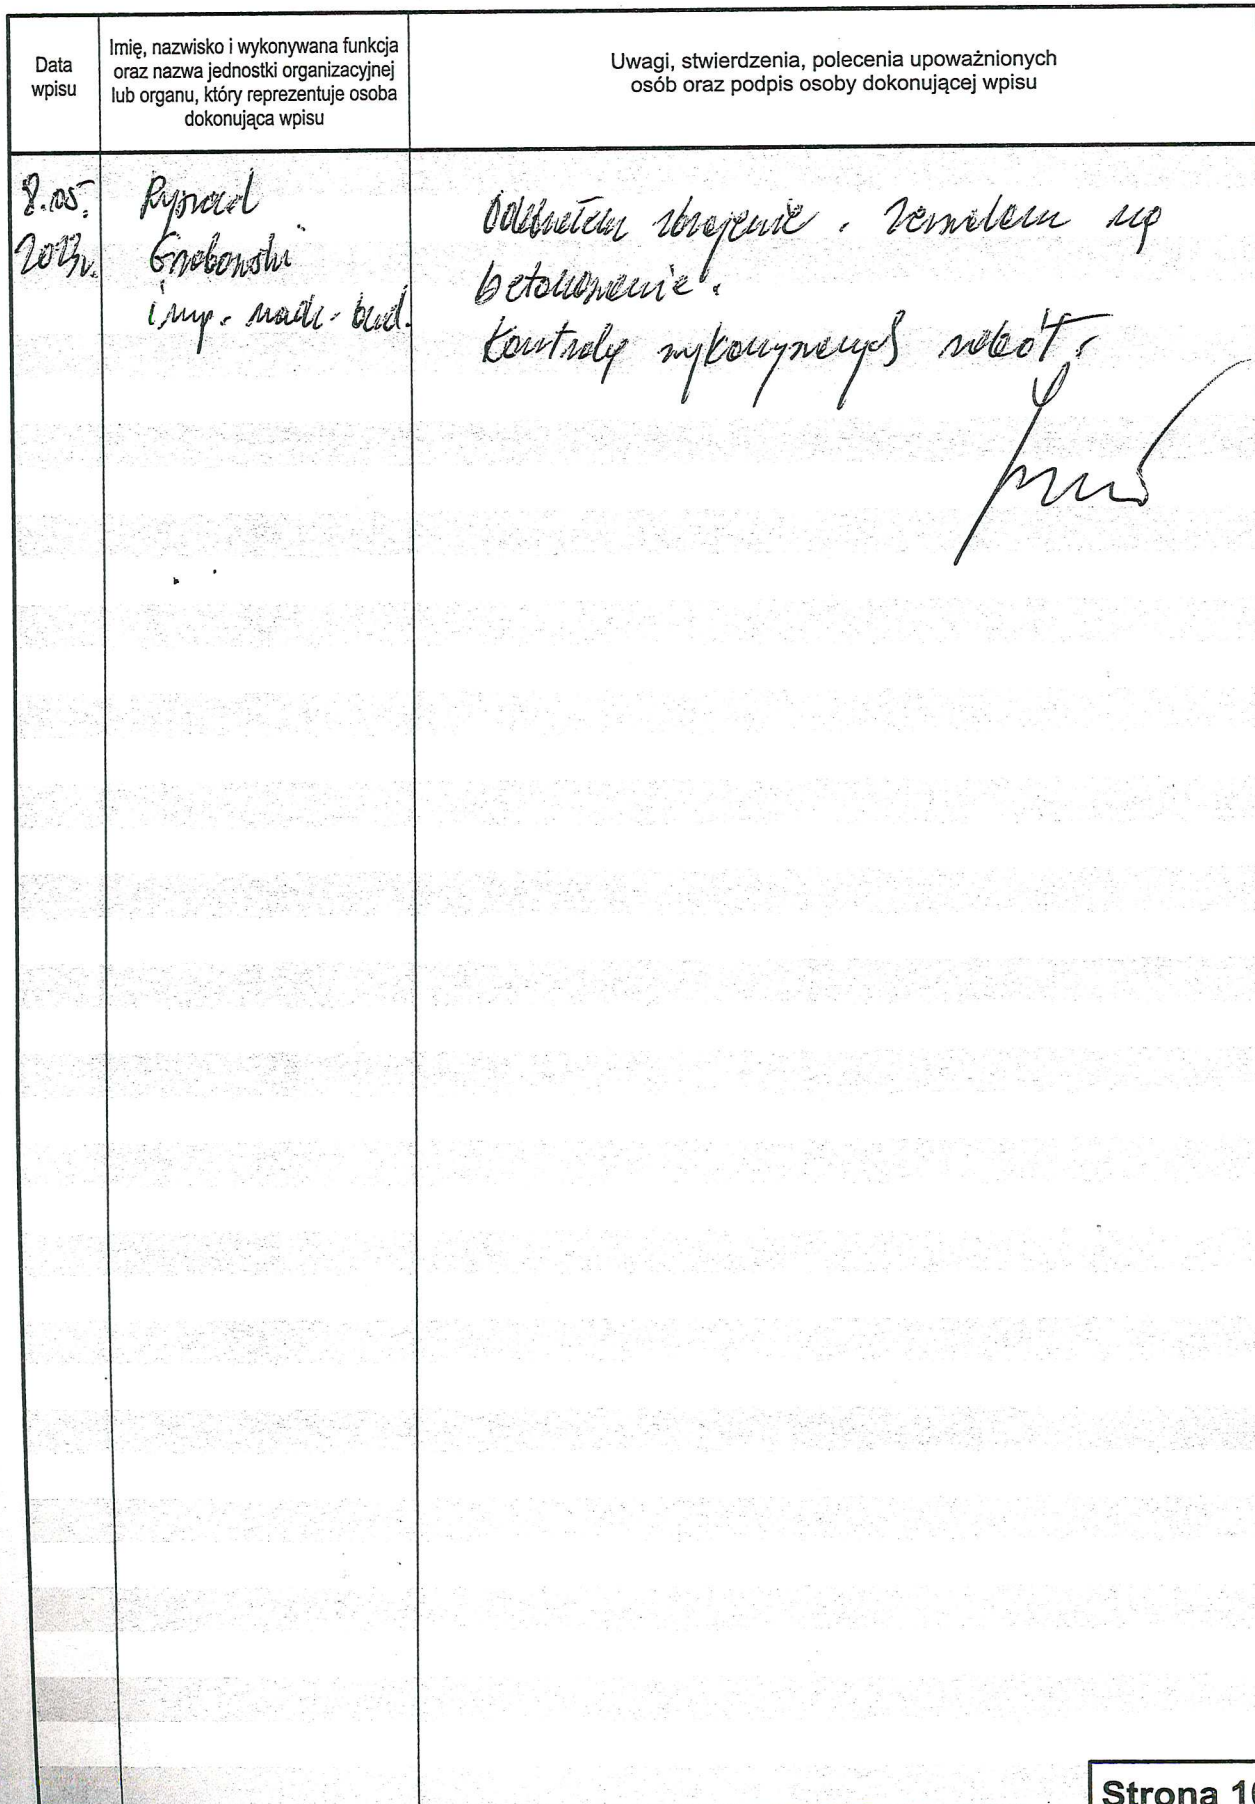 Data
wpisu
Imię, nazwisko i wykonywana funkcja
oraz nazwa jednostki organizacyjnej
lub organu, który reprezentuje osoba
dokonująca wpisu
Uwagi, stwierdzenia, polecenia upoważnionych
osób oraz podpis osoby dokonującej wpisu
8.05.
2013r.
Ryszard
Grabowski
insp. nadz. bud.
Odebrałem zbrojenie. Zezwalam na
betonowanie.
Kontrolę wykonywanych robót.
Strona 10